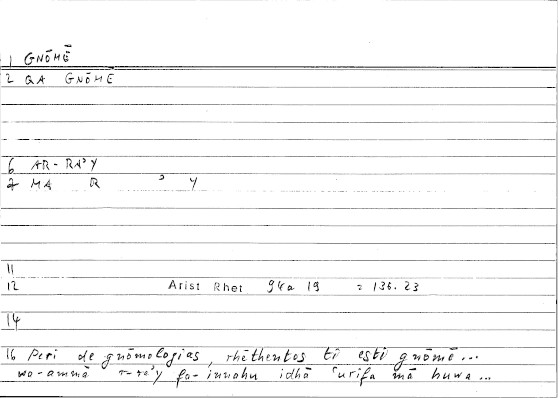 1 GNŌMĒ
2 QA GNŌMĒ
6 AR-RAʾY
7 MA R ʾ Y
11
12 Arist Rhet 94a 19 = 136.23
14
16 Peri de gnōmologias, rhēthentos ti esti gnōmē...
wa-ammā r-raʾy fa-innahu idhā ʿurifa mā huwa...